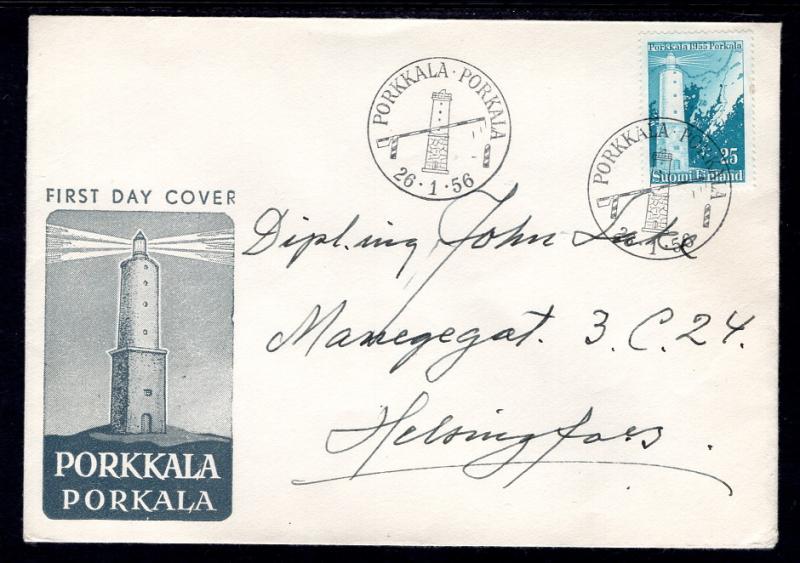 PORKKALA · PORKALA
26 · 1 · 56
Porkkala 1955 Porkala
25
Suomi Finland
PORKKALA · PORKALA
26 · 1 · 56
FIRST DAY COVER
Dipl. ing John
Manegegat. 3. C. 24.
Helsingfors.
PORKKALA
PORKALA